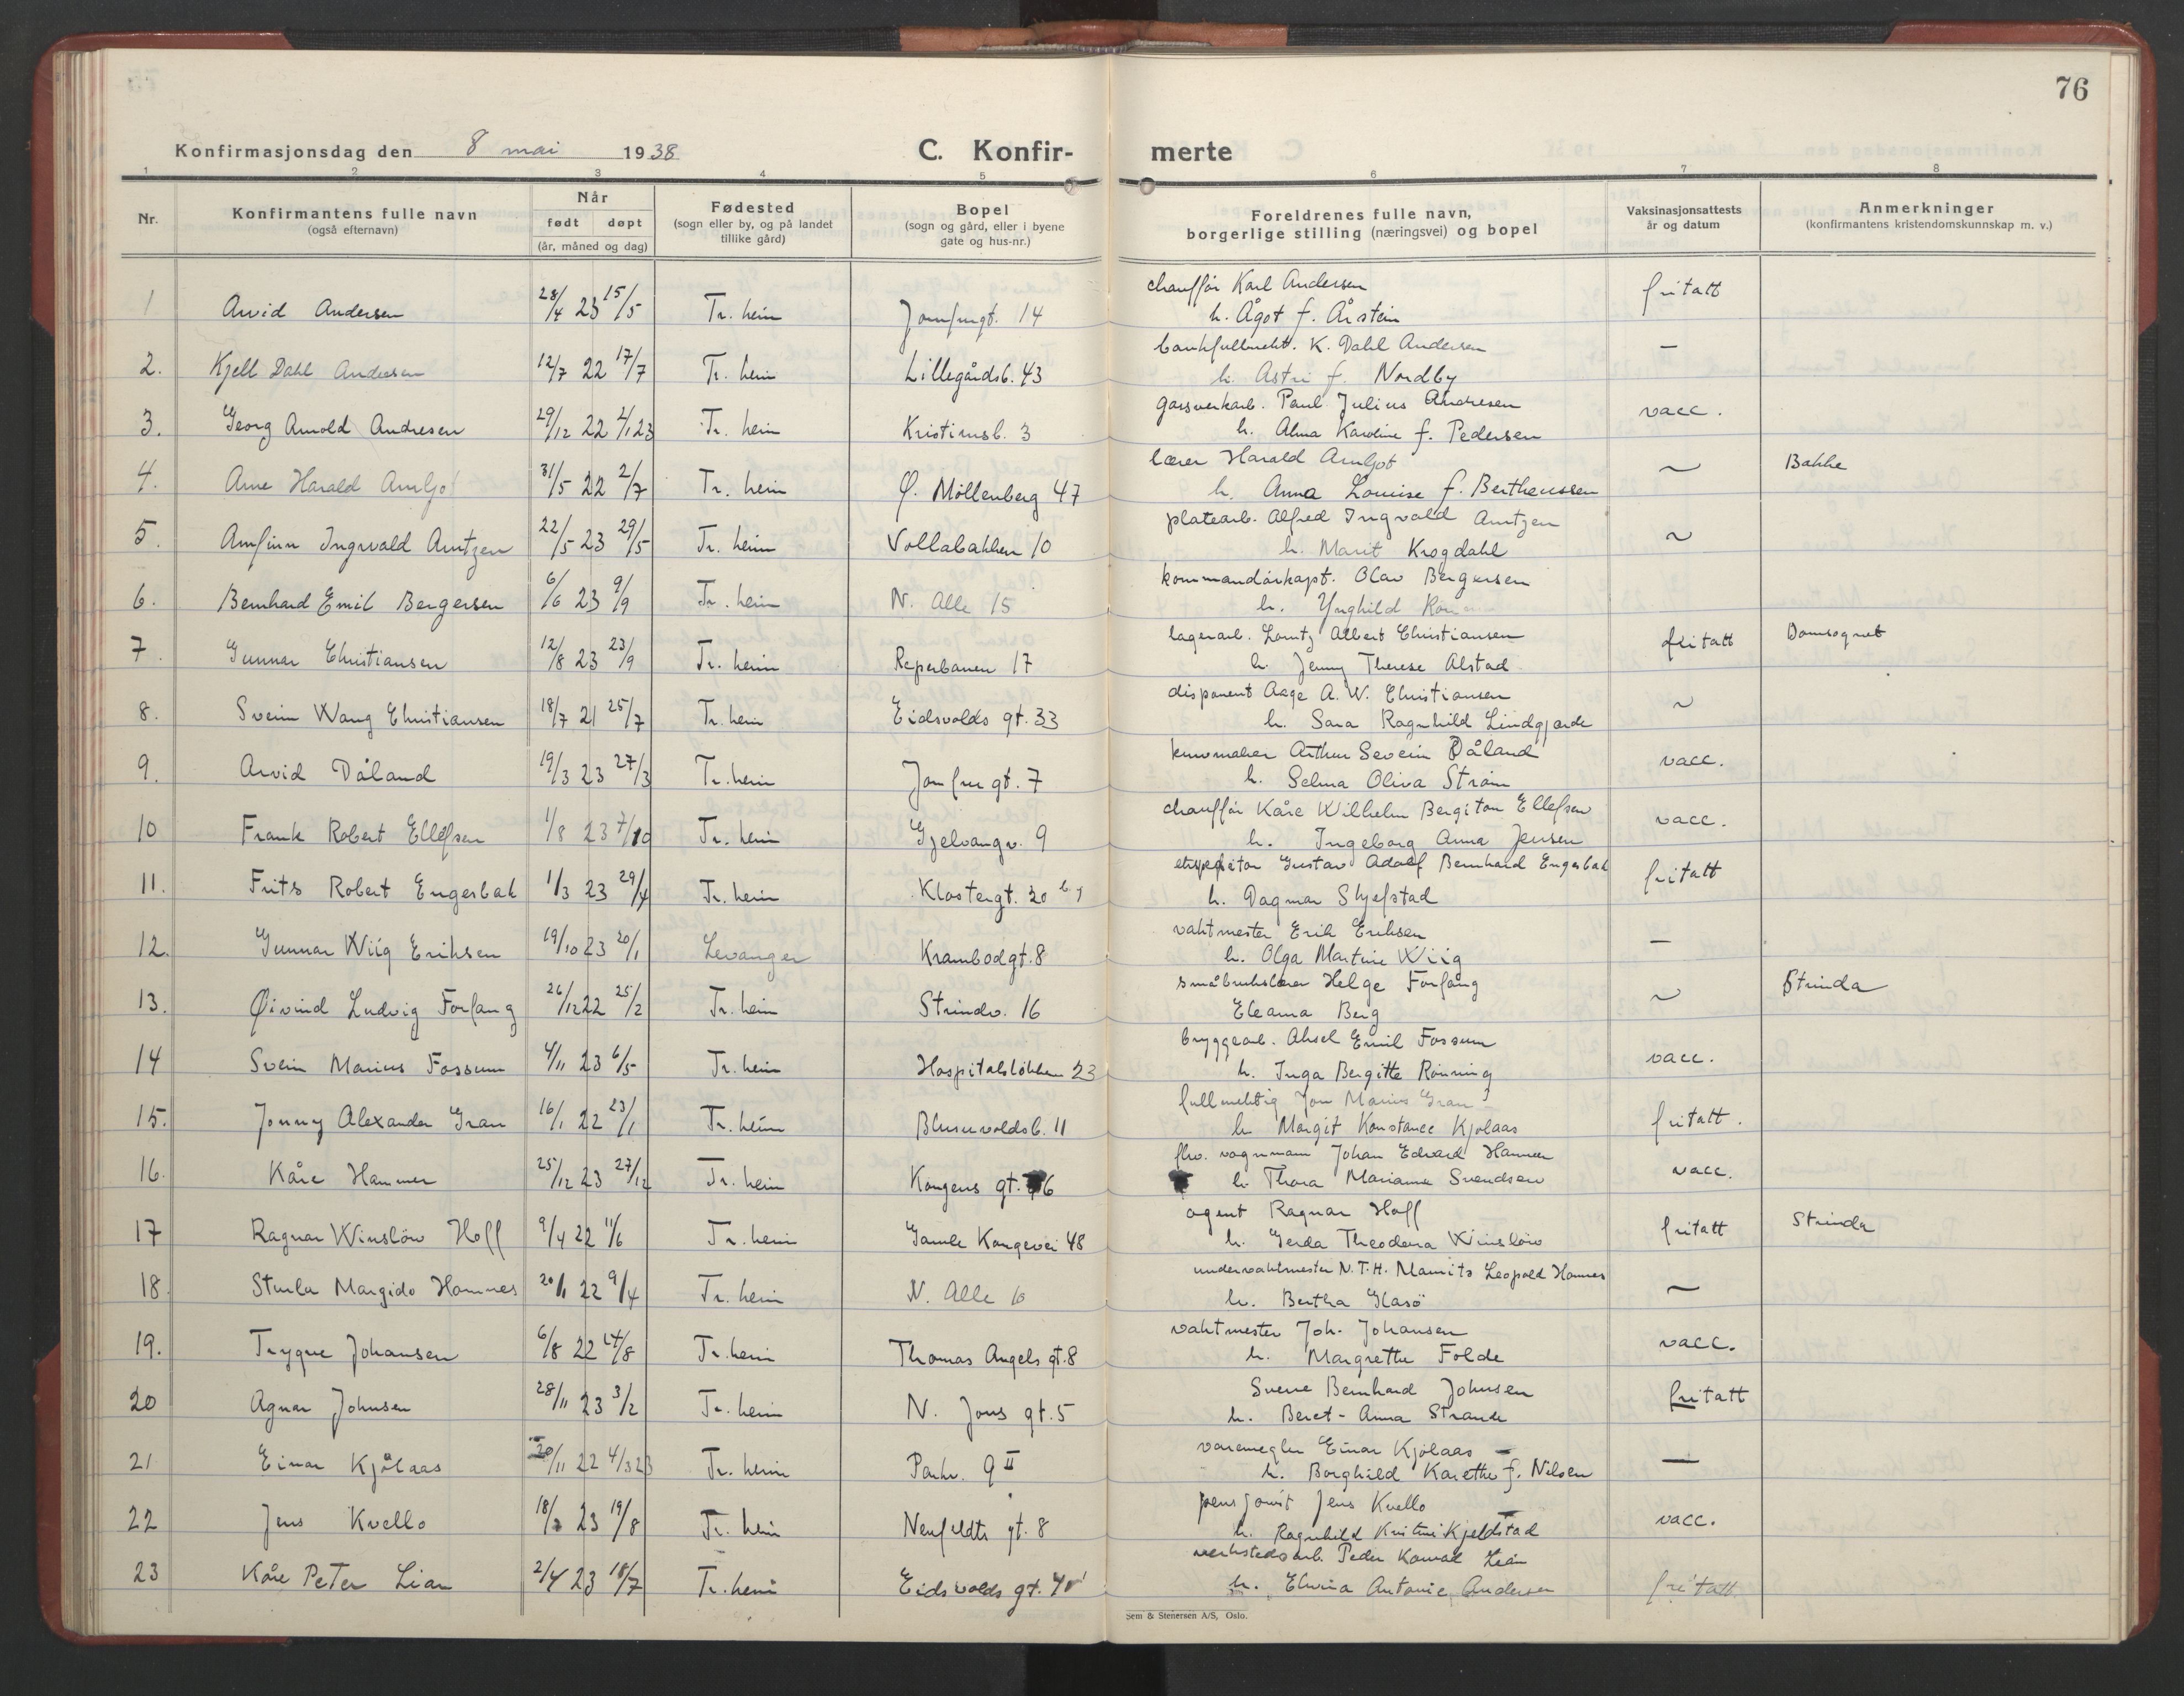 76
Konfirmasjonsdag den 8 mai 1938 C. Konfir- merte
1 2 3 4 5 6 7 8
Nr. Konfirmantens fulle navn (også efternavn) Når født døpt (år, måned og dag) Fødested (sogn eller by, og på landet tillike gård) Bopel (sogn og gård, eller i byene gate og hus-nr.) Foreldrenes fulle navn, borgerlige stilling (næringsvei) og bopel Vaksinasjonsattests år og datum Anmerkninger (konfirmantens kristendomskunnskap m. v.)
chauffør Karl Andersen
1 Arvid Andersen 28/4 23 15/5 Tr. heim Jomfrugt. 14 h. Ågot f. Årstein fritatt
bankfullmekt. K. Dahl Andersen
2. Kjell Dahl Andersen 12/7 22 17/7 Tr. heim Lillegårdsb. 43 h. Astri f. Nordby —
gassverkarb. Paul Julius Andresen
3. Georg Arnold Andresen 29/12 22 2/1 23 Tr. heim Kristiansb. 3 h. Alma Karoline f. Pedersen vacc.
lærer Harald Arnljot
4. Arne Harald Arnljot 31/5 22 2/7 Tr. heim Ø. Möllenberg 47 h. Anna Louise f. Bertheussen ~ Bakke
platearb. Alfred Ingvald Arntzen
5. Arnfinn Ingvald Arntzen 22/5 23 29/5 Tr. heim Vollabakken 10 h. Marit Krogdahl ~
kommandørkapt. Olav Bergersen
6. Bernhard Emil Bergersen 6/6 23 9/9 Tr. heim N. Alle 15 h. Ynghild
lagerarb. Lorntz Albert Christiansen
7. Gunnar Christiansen 12/8 23 23/9 Tr. heim Reperbanen 17 h. Jenny Therese Alstad fritatt Domsognet
disponent Aage A. W. Christiansen
8. Svein Wang Christiansen 18/7 21 25/7 Tr. heim Eidsvolds gt. 33 h. Sara Ragnhild Lindgjærde ~
Arthur Severin Dåland
9. Arvid Dåland 19/3 23 27/3 Tr. heim Jomfru gt. 7 h. Selma Oliva Strøm vacc.
chauffør Kåre Wilhelm Bergiton Ellefsen
10 Frank Robert Ellefsen 1/8 23 7/10 Tr. heim Gjelvangv. 9 h. Ingeborg Anna Jensen vacc.
ekspeditør Gustav Adolf Bernhard Engesbak
11. Frits Robert Engesbak 1/3 23 29/4 Tr. heim Klostergt. 20 h. Dagmar Skjefstad fritatt
vaktmester Erik Eriksen
12. Gunnar Wiig Eriksen 19/10 23 20/1 Levanger Krambodgt. 8 h. Olga Martine Wiig —
småbrukslærer Helge Forfang
13. Øivind Ludvig Forfang 26/12 22 25/2 Tr. heim Strindv. 16 Eleanna Berg ~ Strinda
bryggearb. Aksel Emil Fossum
14 Svein Marius Fossum 4/11 23 6/5 Tr. heim Hospitalsløkken 23 h. Inga Bergitte Rønning vacc.
fullmektig Jon Marius Gran
15. Jonny Alexander Gran 16/1 22 23/1 Tr. heim Blusuvoldsb. 11 h. Margit Konstance Kjølaas fritatt.
fhv. vognmann Johan Edvard Hammer
16. Kåre Hammer 25/12 23 27/12 Tr. heim Kongens gt. 6 h. Thora Marianne Svendsen vacc.
agent Ragnar Hoff
17 Ragnar Winsløw Hoff 9/4 22 11/6 Tr. heim Gamle Kongevei 48 h. Gerda Theodora Winsløw fritatt Strinda
undervaktmester N.T.H. Mauritz Leopold Hamnes
18. Sturla Margido Hamnes 20/1 22 9/4 Tr. heim N. Alle 10 h. Bertha Glasö —
vaktmester Joh. Johansen
19. Trygve Johansen 6/8 22 27/8 Tr. heim Thomas Angels gt. 8 h. Margrethe Folde vacc.
Sverre Bernhard Johnsen
20 Agnar Johnsen 28/11 23 3/2 Tr. heim N. Jons gt. 5 h. Beret-Anna Strande fritatt
varemegler Einar Kjølaas
21 Einar Kjølaas 20/11 22 4/3 23 Tr. heim Parkv. 9 II h. Borghild Karethe f. Nilsen —
Jens Kvello
22 Jens Kvello 18/7 23 19/8 Tr. heim Neufeldts gt. 8 h. Ragnhild Kristine Kjeldstad vacc.
verkstedsarb. Peder Konrad Lian
23 Kåre Peter Lian 2/4 23 18/7 Tr. heim Eidsvolds gt. h. Elvina Antonie Andersen fritatt
Sem & Stenersen A/S, Oslo.